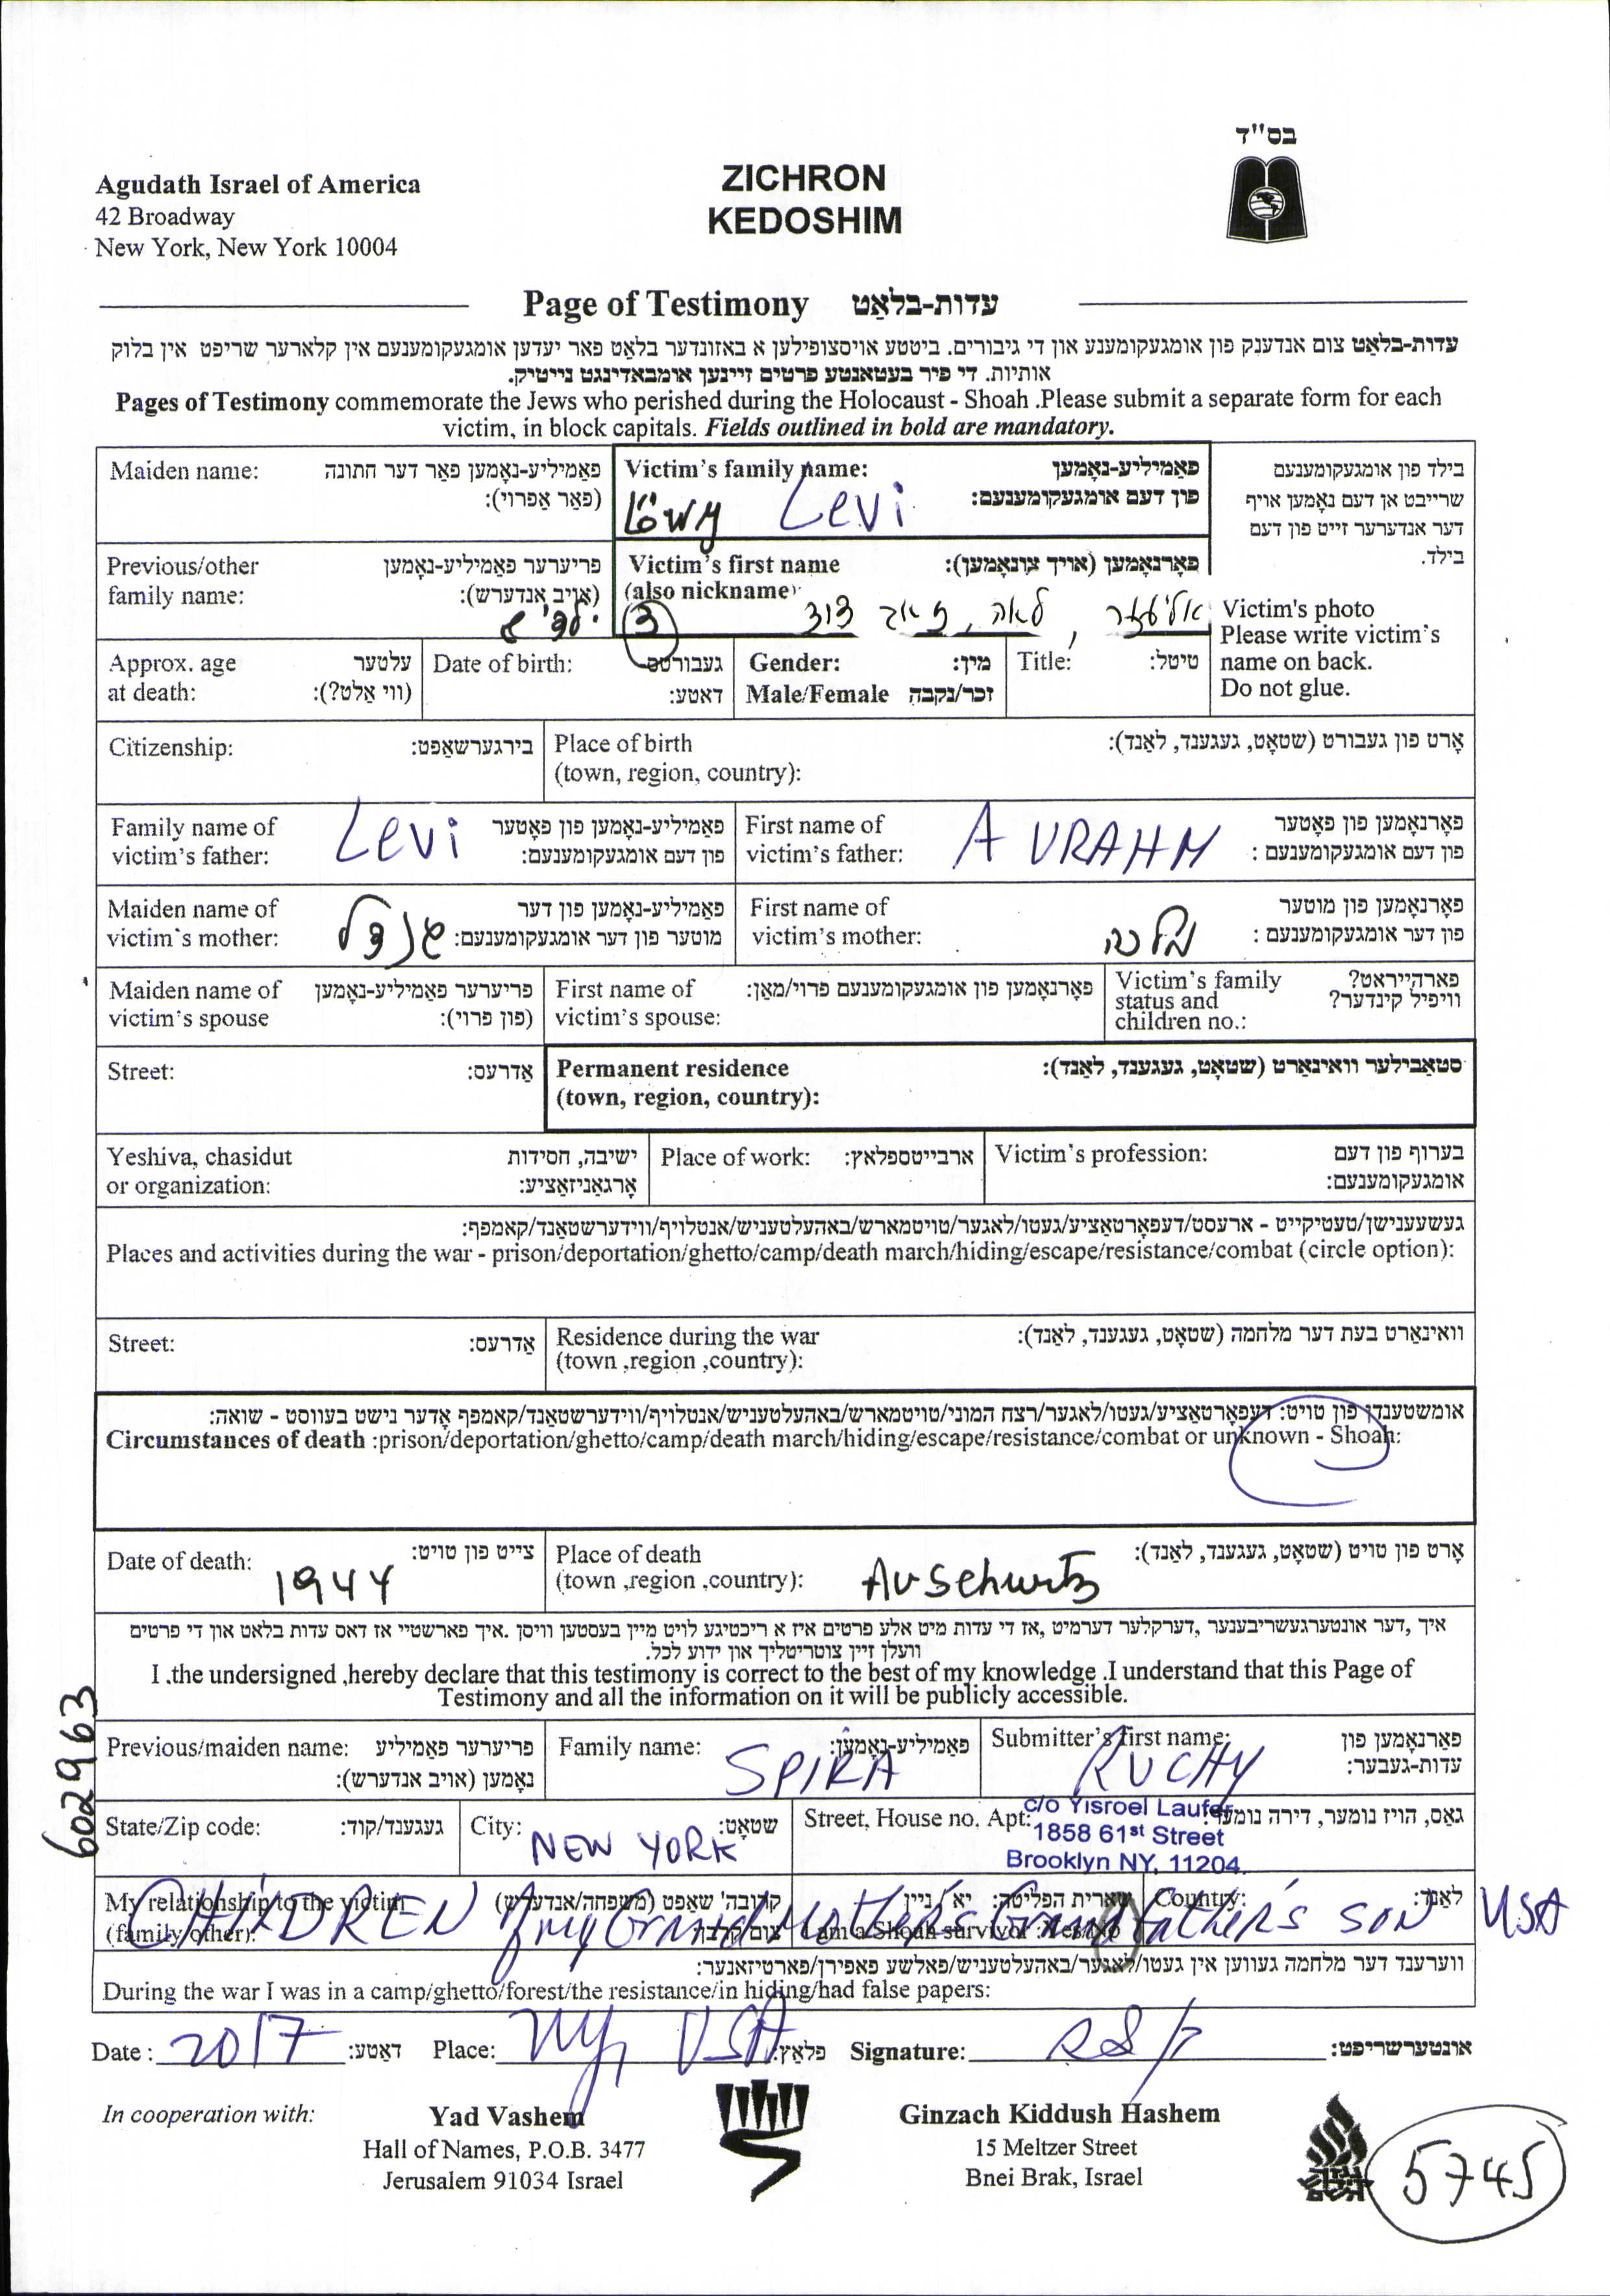 בס"ד
Agudath Israel of America
42 Broadway
New York, New York 10004
ZICHRON
KEDOSHIM
Page of Testimony עדות-בלאַט
עדות-בלאַט צום אנדענק פון אומגעקומענע און די גיבורים. ביטטע אויסצופילען א באזונדער בלאט פאר יעדען אומגעקומענעם אין קלארער שריפט אין בלוק
אותיות. די פיר בעטאנטע פרטים זיינען אומבאדינגט נייטיק.
Pages of Testimony commemorate the Jews who perished during the Holocaust - Shoah .Please submit a separate form for each
victim, in block capitals. Fields outlined in bold are mandatory.
Maiden name: פאַמיליע-נאָמען פאַר דער חתונה
(פאַר אַפרוי):
Victim's family name: פאַמיליע-נאָמען
פון דעם אומגעקומענעם:
Löwy Levi
בילד פון אומגעקומענעם
שרייבט אן דעם נאָמען אויף
דער אנדערער זייט פון דעם
בילד.
Previous/other פריערער פאַמיליע-נאָמען
family name: (אויב אנדערש):
Victim's first name פאָרנאָמען (אויך צונאָמען):
(also nickname)
3 אליעזר, לאה, דוד
Victim's photo
Please write victim's
name on back.
Do not glue.
Approx. age עלטער
at death: (ווי אַלט?):
Date of birth: געבורטס
דאטע:
Gender: מין:
Male/Female זכר/נקבה
Title: טיטל:
Citizenship: בירגערשאַפט:
Place of birth אָרט פון געבורט (שטאָט, געגענד, לאַנד):
(town, region, country):
Family name of פאַמיליע-נאָמען פון פאָטער
victim's father: פון דעם אומגעקומענעם:
Levi
First name of פאָרנאָמען פון פאָטער
victim's father: פון דעם אומגעקומענעם :
AVRAHM
Maiden name of פאַמיליע-נאָמען פון דער
victim's mother: מוטער פון דער אומגעקומענעם:
First name of פאָרנאָמען פון מוטער
victim's mother: פון דער אומגעקומענעם :
מלכה
Maiden name of פריערער פאַמיליע-נאָמען
victim's spouse (פון פרוי):
First name of פאָרנאָמען פון אומגעקומענעם פרוי/מאַן:
victim's spouse:
Victim's family פארהייראט?
status and וויפיל קינדער?
children no.:
Street: אַדרעס:
Permanent residence סטאַבילער וואוינאַרט (שטאָט, געגענד, לאַנד):
(town, region, country):
Yeshiva, chasidut ישיבה, חסידות
or organization: אָרגאַניזאַציע:
Place of work: ארבייטספלאץ:
Victim's profession: בערוף פון דעם
אומגעקומענעם:
געשעענישן/טעטיקייט - ארעסט/דעפאָרטאַציע/געטו/לאַגער/טויטמארש/באהעלטעניש/אנטלויף/ווידערשטאַנד/קאמפף:
Places and activities during the war - prison/deportation/ghetto/camp/death march/hiding/escape/resistance/combat (circle option):
Street: אַדרעס:
Residence during the war וואוינאַרט בעת דער מלחמה (שטאָט, געגענד, לאַנד):
(town ,region ,country):
אומשטענדן פון טויט: דעפאָרטאַציע/געטו/לאגער/רצח המוני/טויטמארש/באהעלטעניש/אנטלויף/ווידערשטאַנד/קאמפף אָדער נישט בעווסט - שואה:
Circumstances of death :prison/deportation/ghetto/camp/death march/hiding/escape/resistance/combat or unknown - Shoah:
Date of death: צייט פון טויט:
1944
Place of death אָרט פון טויט (שטאָט, געגענד, לאַנד):
(town ,region ,country):
Auschwitz
איך ,דער אונטערגעשריבענער ,דערקלער דערמיט ,אז די עדות מיט אלע פרטים איז א ריכטיגע לויט מיין בעסטען וויסן .איך פארשטיי אז דאס עדות בלאט און די פרטים
וועלן זיין צוטריטליך און ידוע לכל.
I .the undersigned ,hereby declare that this testimony is correct to the best of my knowledge .I understand that this Page of
Testimony and all the information on it will be publicly accessible.
6602963
Previous/maiden name: פריערער פאַמיליע
נאָמען (אויב אנדערש):
Family name: פאַמיליע-נאָמען:
SPIRA
Submitter's first name: פאָרנאָמען פון
עדות-געבער:
RUCHY
State/Zip code: געגענד/קוד:
City: שטאָט:
NEW YORK
Street, House no. Apt: גאַס, הויז נומער, דירה נומער:
c/o Yisroel Laufer
1858 61st Street
Brooklyn NY, 11204
My relationship to the victim קרובה' שאַפט (משפחה/אנדערש)
(family/other):
I am a Shoah survivor :Yes/No שארית הפליטה: יא / ניין
Country: לאַנד:
CHILDREN of my Grand Mother's Grandfather's SON USA
ווערענד דער מלחמה געווען אין געטו/לאַגער/באהעלטעניש/פאלשע פאפירן/פארטיזאנער:
During the war I was in a camp/ghetto/forest/the resistance/in hiding/had false papers:
Date : 2017 דאַטע: Place: NY, USA פלאַץ: Signature: אונטערשריפט:
In cooperation with:
Yad Vashem
Hall of Names, P.O.B. 3477
Jerusalem 91034 Israel
Ginzach Kiddush Hashem
15 Meltzer Street
Bnei Brak, Israel
5745